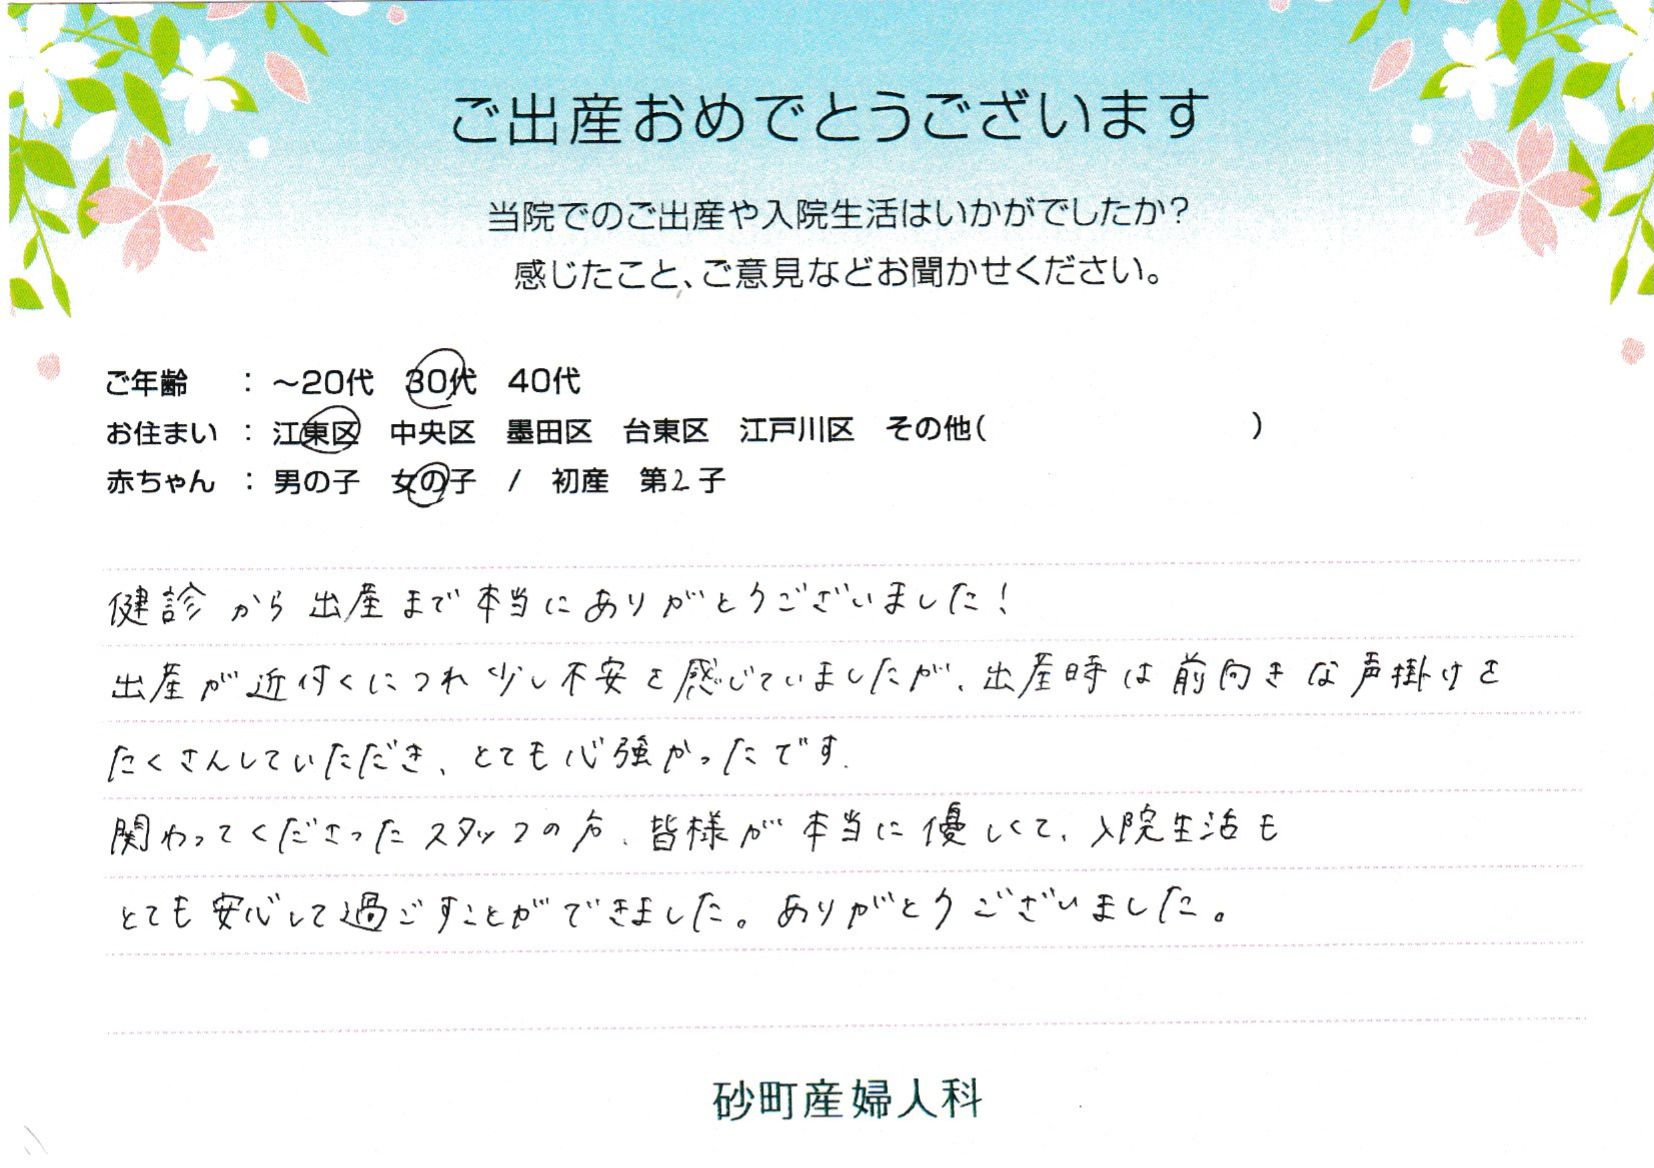 ご出産おめでとうございます
当院でのご出産や入院生活はいかがでしたか?
感じたこと、ご意見などお聞かせください。
ご年齢 : ～20代 30代 40代
お住まい : 江東区 中央区 墨田区 台東区 江戸川区 その他( )
赤ちゃん : 男の子 女の子 / 初産 第2子
健診から出産まで本当にありがとうございました!
出産が近付くにつれ少し不安を感じていましたが、出産時は前向きな声掛けを
たくさんしていただき、とても心強かったです.
関わってくださったスタッフの方、皆様が本当に優しくて、入院生活も
とても安心して過ごすことができました。ありがとうございました。
砂町産婦人科